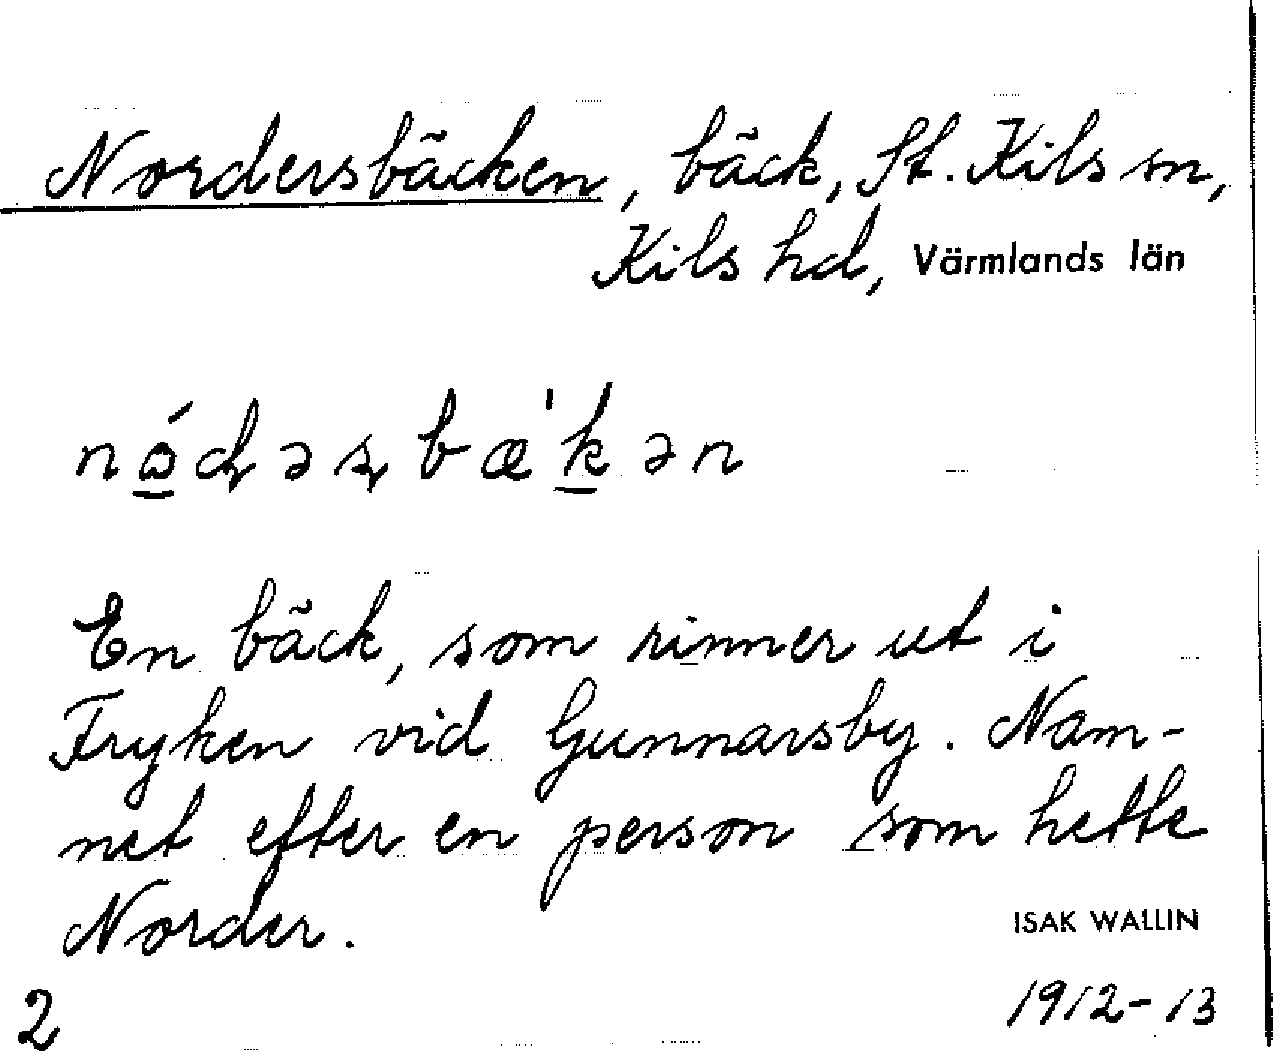 Nordersbäcken, bäck, St. Kils sn,
Kils hd, Värmlands län
nɷ́ɖəʂbæ'kən
En bäck, som rinner ut i
Fryken vid Gunnarsby. Nam-
net efter en person som hette
Norder.
ISAK WALLIN
2
1912-13